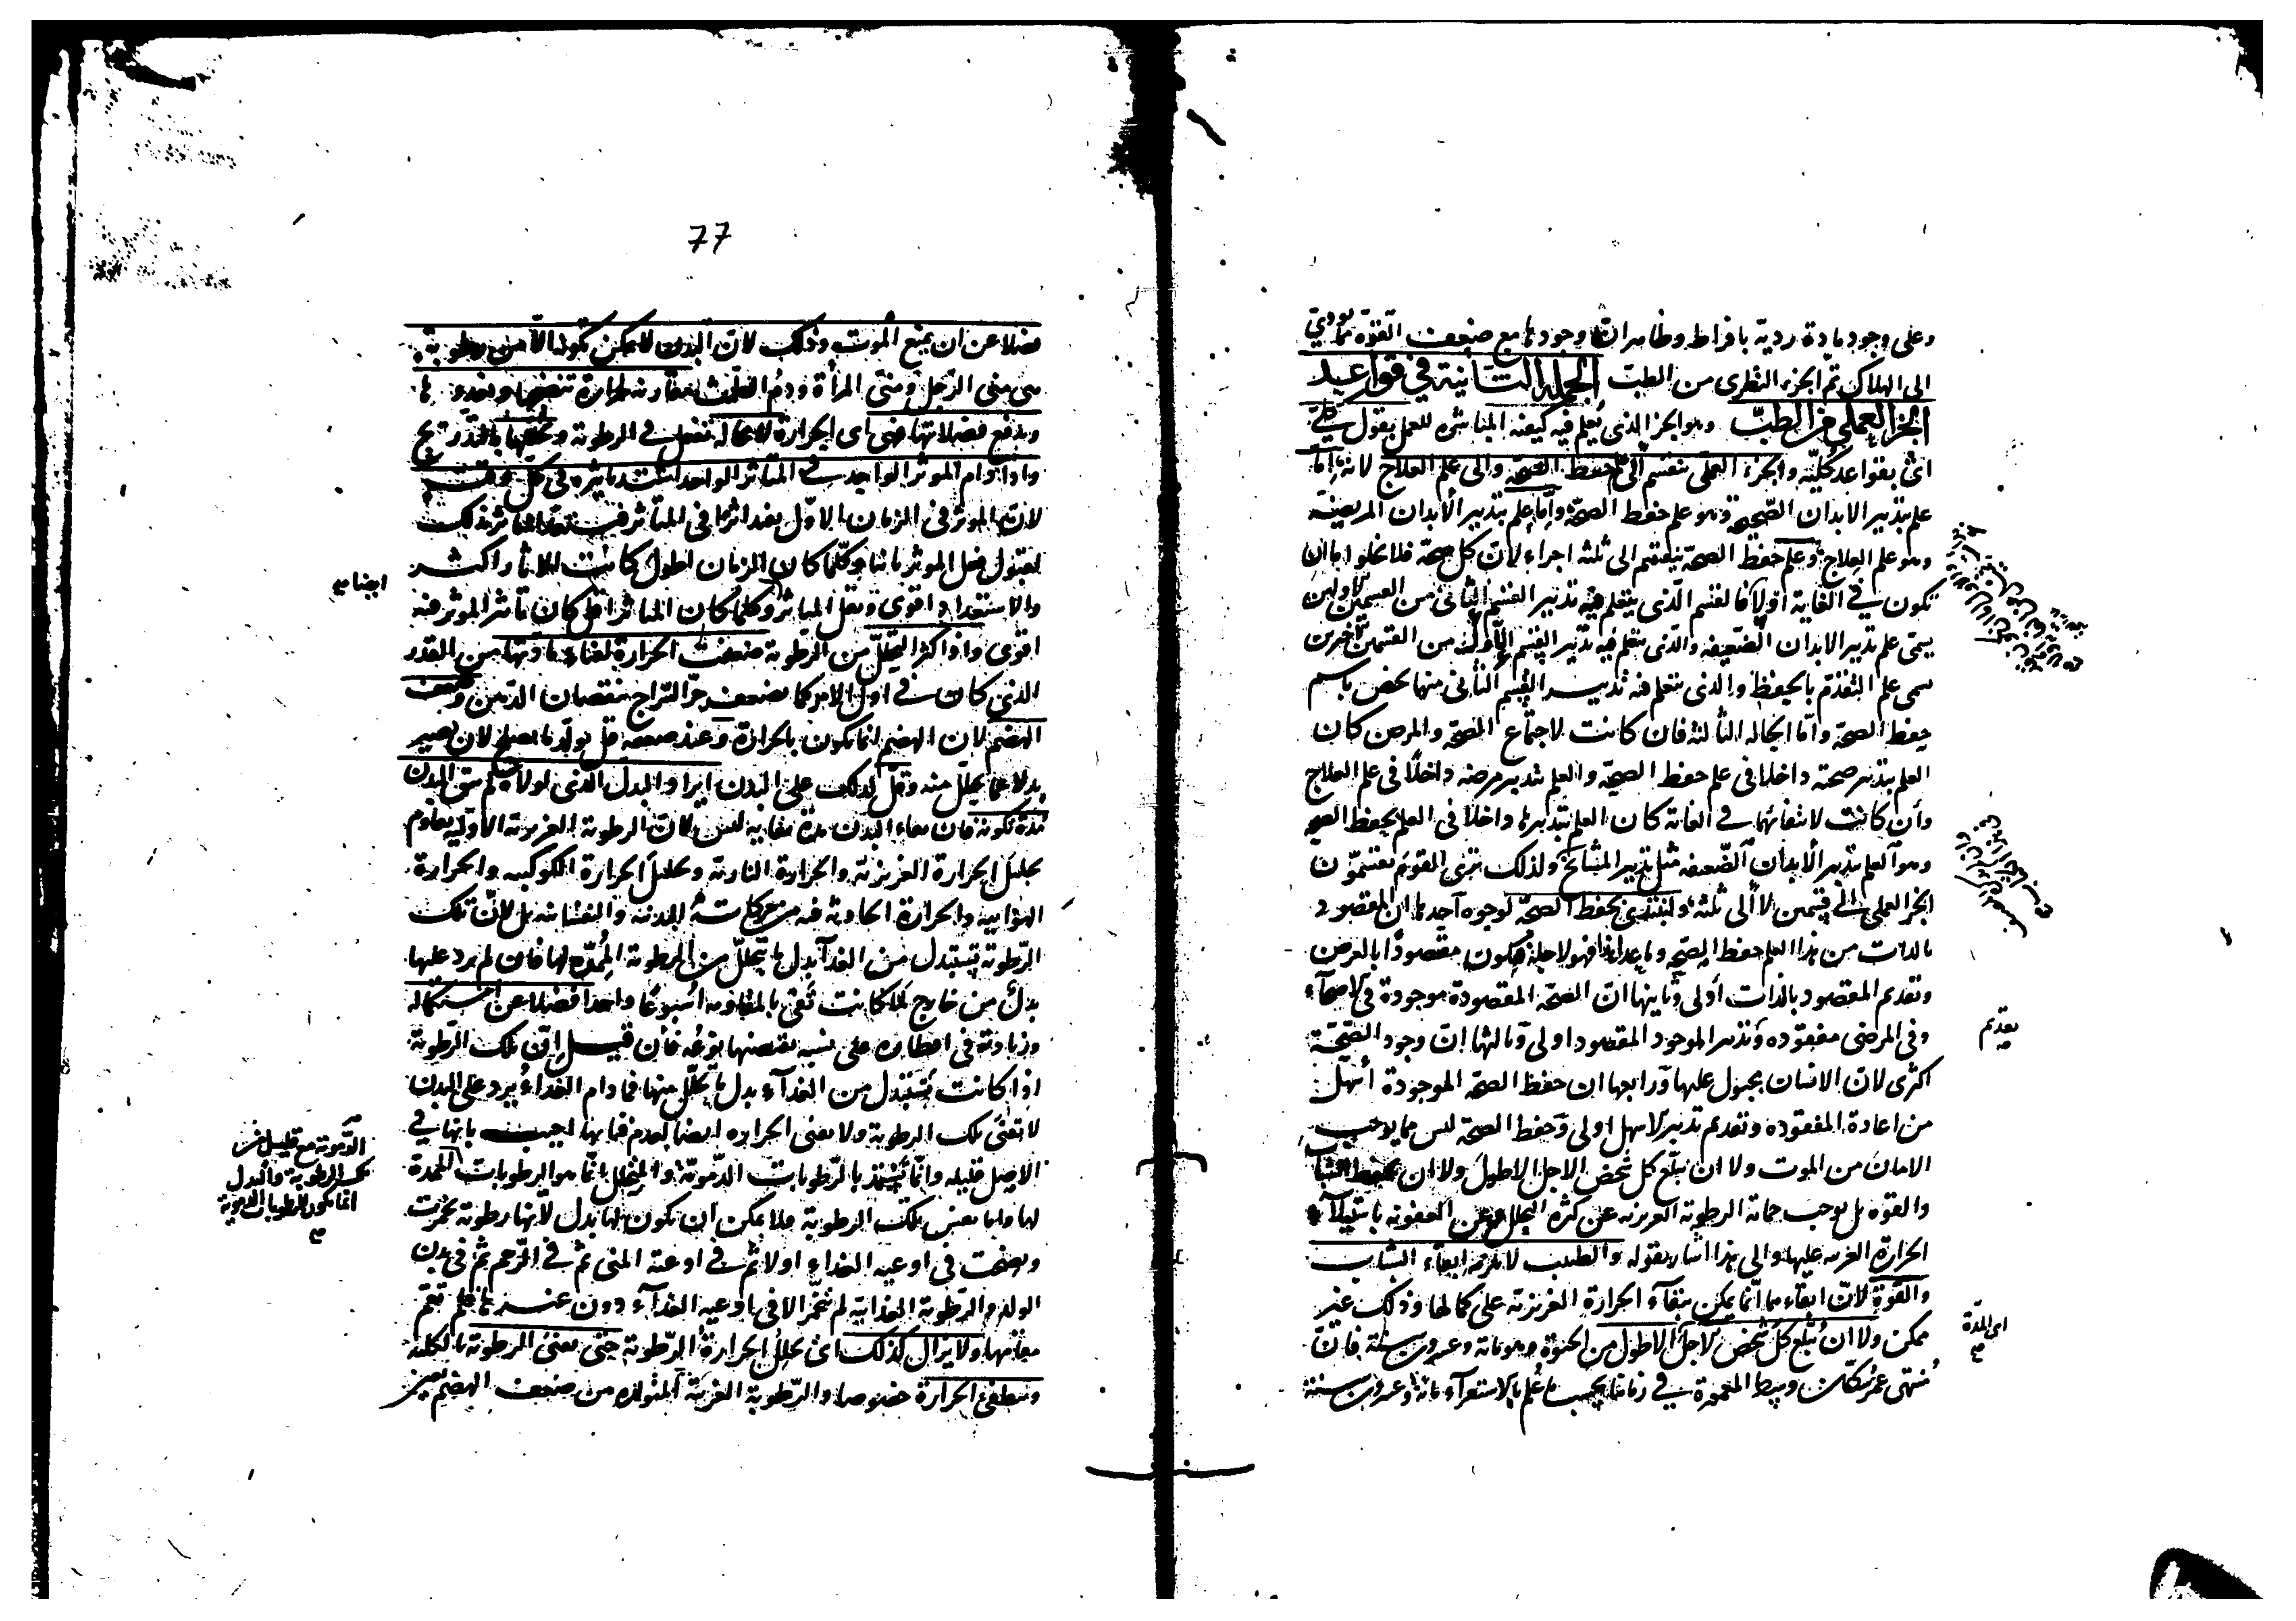 وعلى وجود مادة ردية بافراط وظاهر ان وجودها مع ضعف القوة مما يودي
الى الهلاك تم الجزء النظرى من الطب الجملة الثانية في قواعد
الجزء العملي من الطب وهو الجزء الذى يعلم فيه كيفية المباشرة للعمل بقول كلي
اى بقواعد كلية والجزء العملي ينقسم الى علم حفظ الصحة والى علم العلاج لانه اما
علم بتدبير الابدان الصحيحة وهو علم حفظ الصحة واما علم بتدبير الابدان المريضة
وهو علم العلاج وعلم حفظ الصحة ينقسم الى ثلثة اجزاء لان كل صحة فلا يخلوا اما ان
تكون في الغاية او لا فالقسم الذى يتعلم فيه تدبير القسم الثانى من القسمين الاولين
يسمى علم تدبير الابدان الضعيفة والذى يتعلم فيه تدبير القسم الاول من القسمين الاخيرين
يسمى علم التقدم بالحفظ والذى يتعلم فيه تدبير القسم الثانى منها يخص باسم
حفظ الصحة واما الحالة الثالثة فان كانت لاجتماع الصحة والمرض كان
العلم بتدبير صحته داخلا فى علم حفظ الصحة والعلم بتدبير مرضه داخلا فى علم العلاج
وان كانت لانتفائهما في الغاية كان العلم بتدبيرها داخلا فى العلم بحفظ الصحة
وهو العلم بتدبير الابدان الضعيفة مثل تدبير المشايخ ولذلك ترى القوم يقسمون
الجزء العملي الى قسمين لا الى ثلثة ولنبتدى بحفظ الصحة لوجوه احدها ان المقصود
بالذات من هذا العلم حفظ الصحة وما عداها فهو لاجله فيكون مقصودا بالعرض
وتقديم المقصود بالذات اولى وثانيها ان الصحة المقصودة موجودة فى الاصحاء
وفى المرضى مفقوده وتدبير الموجود المقصود اولى وثالثها ان وجود الصحة
اكثرى لان الانسان مجبول عليها ورابعها ان حفظ الصحة الموجودة اسهل
من اعادة المفقوده وتقديم تدبير الاسهل اولى وحفظ الصحة ليس مما يوجب
الامان من الموت ولا ان يبلغ كل شخص الاجل الاطول ولا ان يحفظ الشباب
والقوه بل يوجب حماية الرطوبة الغريزية عن كثرة التحلل وعن العفونة باستيلاء
الحرارة الغريبة عليها والى هذا اشار بقوله والطبيب لا يلزمه ابقاء الشباب
والقوة لان ابقاءهما انما يمكن ببقاء الحرارة الغريزية على كمالها وذلك غير
ممكن ولا ان يبلغ كل شخص الاجل الاطول من الحيوة وهو مائة وعشرون سنة فان
منتهى عمر سكان وسط المعمورة في زماننا بحسب ما علم بالاستقراء مائة وعشرون سنة
تقديم
اى المدة
77
فضلا عن ان يمنع الموت وذلك لان البدن لا يمكن تكونه الا من رطوبة
هى منى الرجل ومنى المرأة ودم الطمث مقارنه لحرارة تنضجها وتغذوها
وتدفع فضلاتها فهى اى الحرارة لا محالة تفعل في الرطوبة وتحللها بالتدريج
واذا دام الموثر الواحد في المتاثر الواحد اشتد تاثيره فى كل وقت
لان الموثر فى الزمان الاول يفيد اثرا فى المتاثر فيستعد المتاثر بذلك
لقبول فعل الموثر ثانيا وكلما كان الزمان اطول كانت الاثار اكثر
والاستعداد اقوى وفعل المتاثر وكلما كان المتاثر اقل كان تاثير الموثر فيه
اقوى واذا كثر التحلل من الرطوبة ضعفت الحرارة لفناء مادتها من القدر
الذى كان في اول الامر كما يضعف حر السراج بنقصان الدهن وضعف
الهضم لان الهضم انما يكون بالحرارة وعند ضعفه قل تولد ما يصلح لان يصير
بدلا عما يتحلل منه وقل لذلك على البدن ايراد البدل الذى لولاه لم يبق البدن
مدة تكونه فان بقاء البدن مدة بقايه ليس لان الرطوبة الغريزية الاولية يقاوم
تحليل الحرارة الغريزية والحرارة النارية وتحليل الحرارة الكوكبيه والحرارة
الهوائية والحرارة الحادثة فيه من حركاته البدنية والنفسانية بل لان تلك
الرطوبة تستبدل من الغذاء بدل ما يتحلل من الرطوبة الممدة لها فان لم يرد عليها
بدل من خارج لما كانت تفى بالمقاومة اسبوعا واحدا فضلا عن استكماله
وزيادته فى اقطاره على نسبة يقتضيها نوعه فان قيل ان تلك الرطوبة
اذا كانت تستبدل من الغذاء بدل ما يتحلل منها فما دام الغذاء يرد على البدن
لا تفنى تلك الرطوبة ولا يفنى الحرارة ايضا لعدم فنائها اجيب بانها في
الاصل قليله وانما تستمد بالرطوبات الدموية والمتحلل انما هو الرطوبات الممدة
لها واما نفس تلك الرطوبة فلا يمكن ان يكون لها بدل لانها رطوبة تخمرت
ونضجت فى اوعية الغذاء اولا ثم في اوعية المنى ثم في الرحم ثم فى بدن
الولد والرطوبة الغذائية لم تتخمر الا فى اوعية الغذاء دون غيرها فلم تقم
مقامها ولا يزال كذلك اى تحلل الحرارة الرطوبة حتى يفنى الرطوبة بالكلية
وتنطفى الحرارة خصوصا والرطوبة الغريبة المتولدة من ضعف الهضم تعين
ايضا صح
الدموية مع قليل من
تلك الرطوبة والبدل
انما يكون للرطوبات الدموية
صح